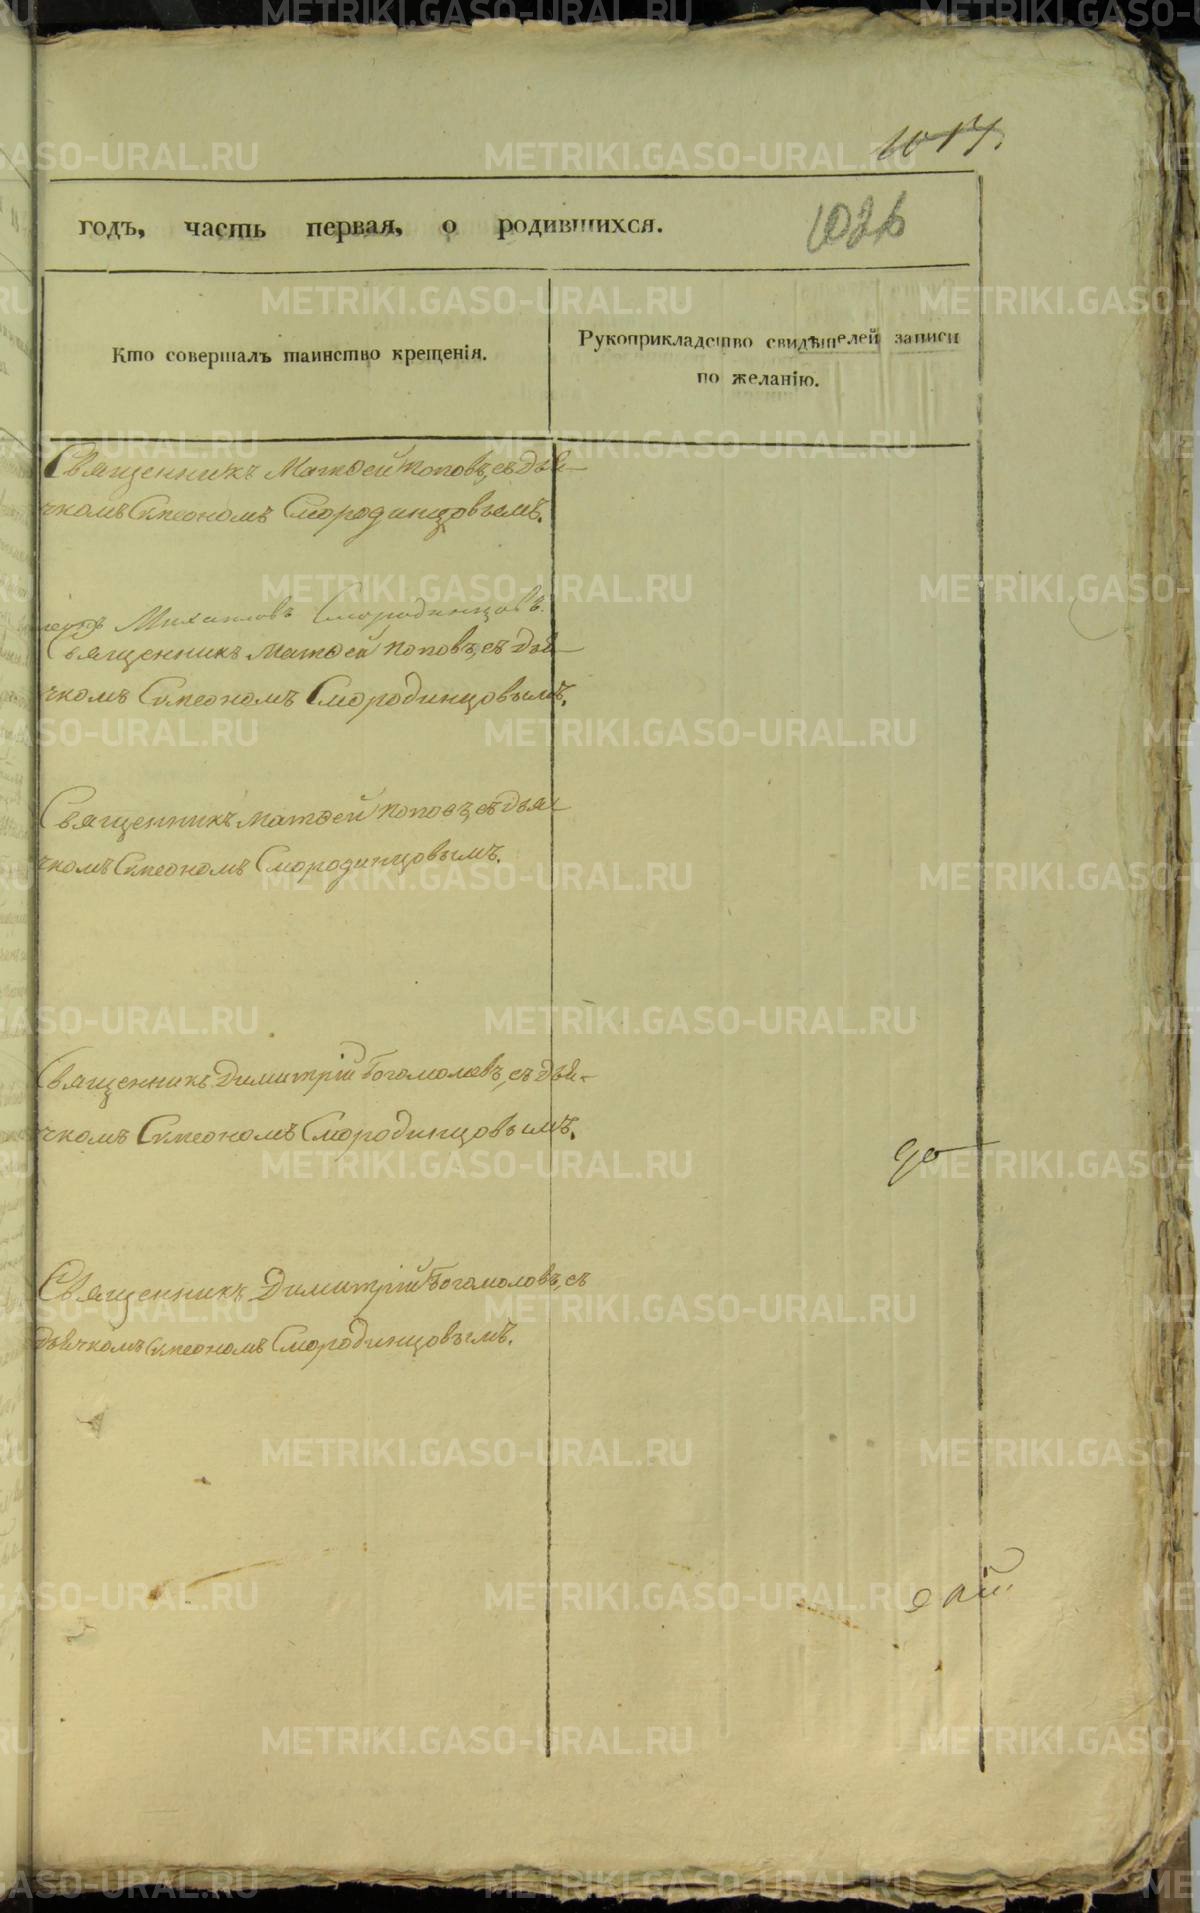 1017.
годъ, часть первая, о родившихся.
1026
Кто совершалъ таинство крещенія.
Рукоприкладство свидѣтелей записи
по желанію.
Священникъ Матѳей Поповъ, съ дья-
чкомъ Симеономъ Смородинцовымъ.
Михаиловъ Смородинцовъ.
Священникъ Матѳей Поповъ, съ дья-
чкомъ Симеономъ Смородинцовымъ.
Священникъ Матѳей Поповъ, съ дья-
чкомъ Симеономъ Смородинцовымъ.
Священникъ Димитрій Богомоловъ, съ дья-
чкомъ Симеономъ Смородинцовымъ.
Священникъ Димитрій Богомоловъ, съ
дьячкомъ Симеономъ Смородинцовымъ.
METRIKI.GASO-URAL.RU